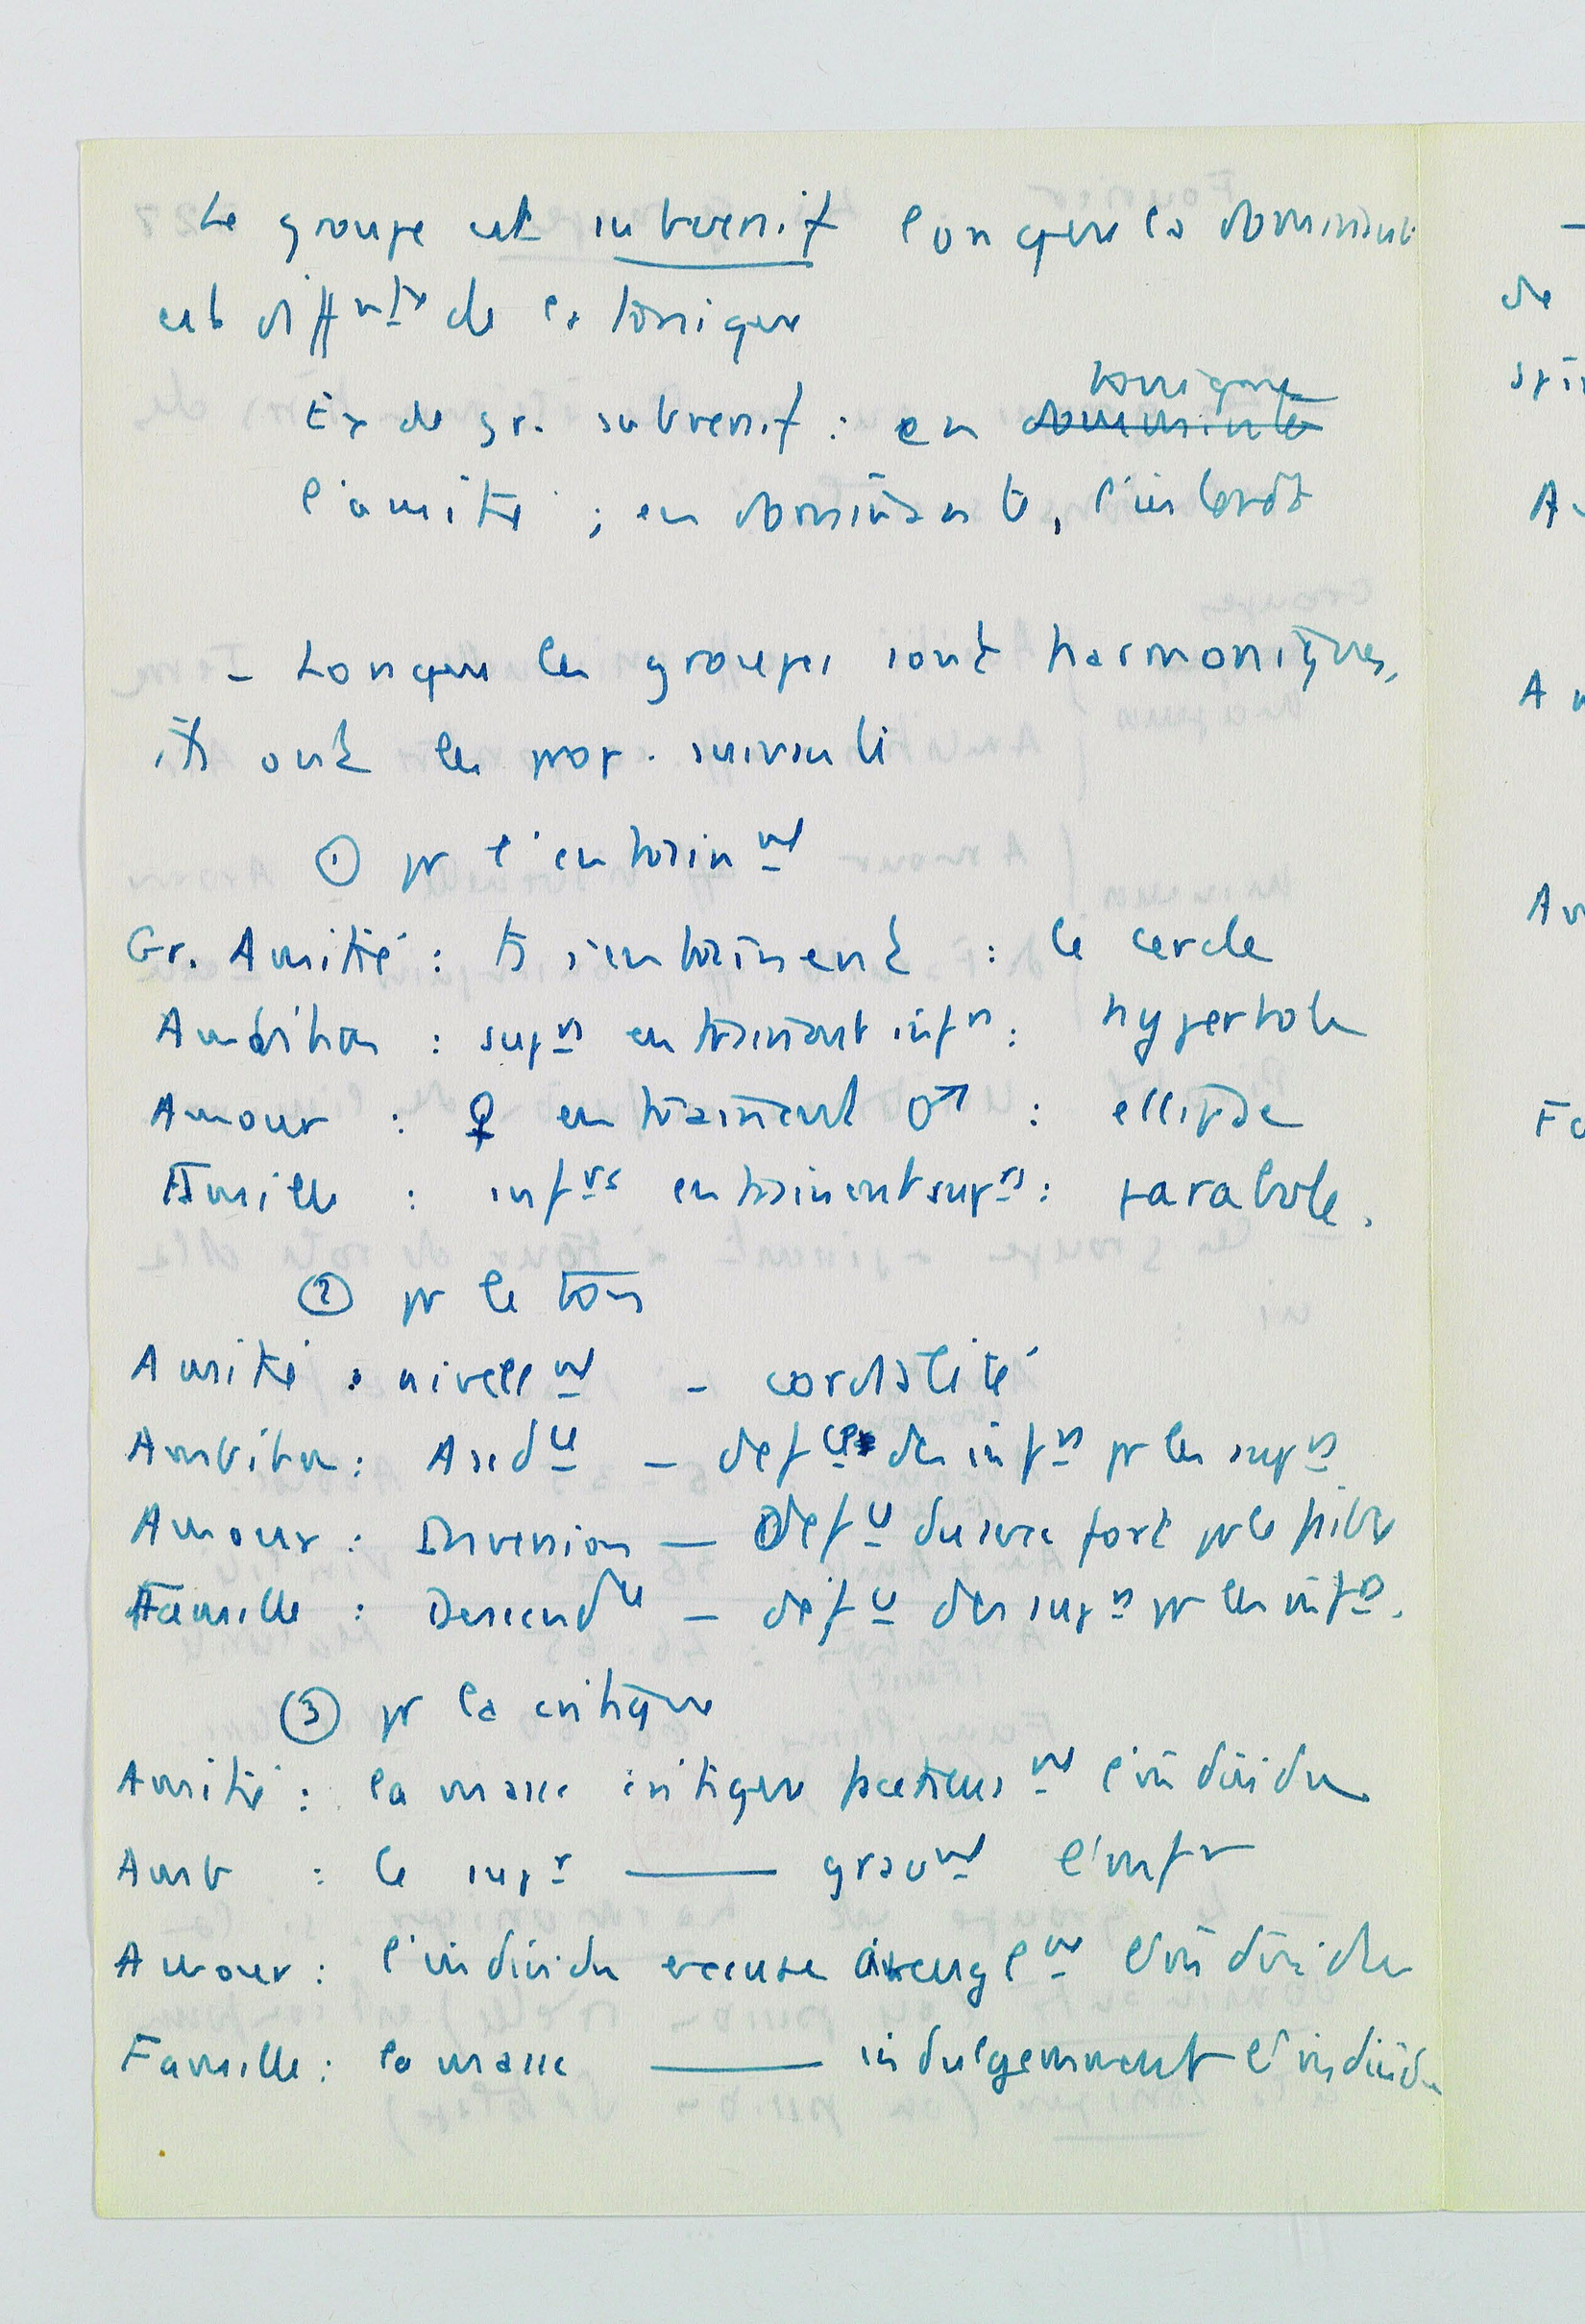 Le groupe est subversif lorsque la dominante
est diffnte de la tonique
tonique
Ex de gr. subversif : en dominante
l'amitié ; en dominante, l'intérêt
- Lorsque les groupes sont harmoniques,
ils ont les prop. suivantes
① pr l'entraînmt
Gr. Amitié : ts s'entraînent : le cercle
Ambition : suprs entraînant infrs : hyperbole
Amour : ♀ entraînent ♂ : ellipse
Famille : infrs entraînent suprs : parabole.
② pr le ton
Amitié : nivellmt - cordialité
Ambition : Ascdce - défce des infrs pr les suprs
Amour : Inversion - Défce du sexe fort pr le faible
Famille : Descendce - défce des suprs pr les infrs.
③ pr la critique
Amitié : la masse critique facétieusmt l'individu
Amb : le supr —— gravmt l'infr
Amour : l'individu excuse aveuglmt l'individu
Famille : la masse —— indulgemment l'individu
de
A
Fa